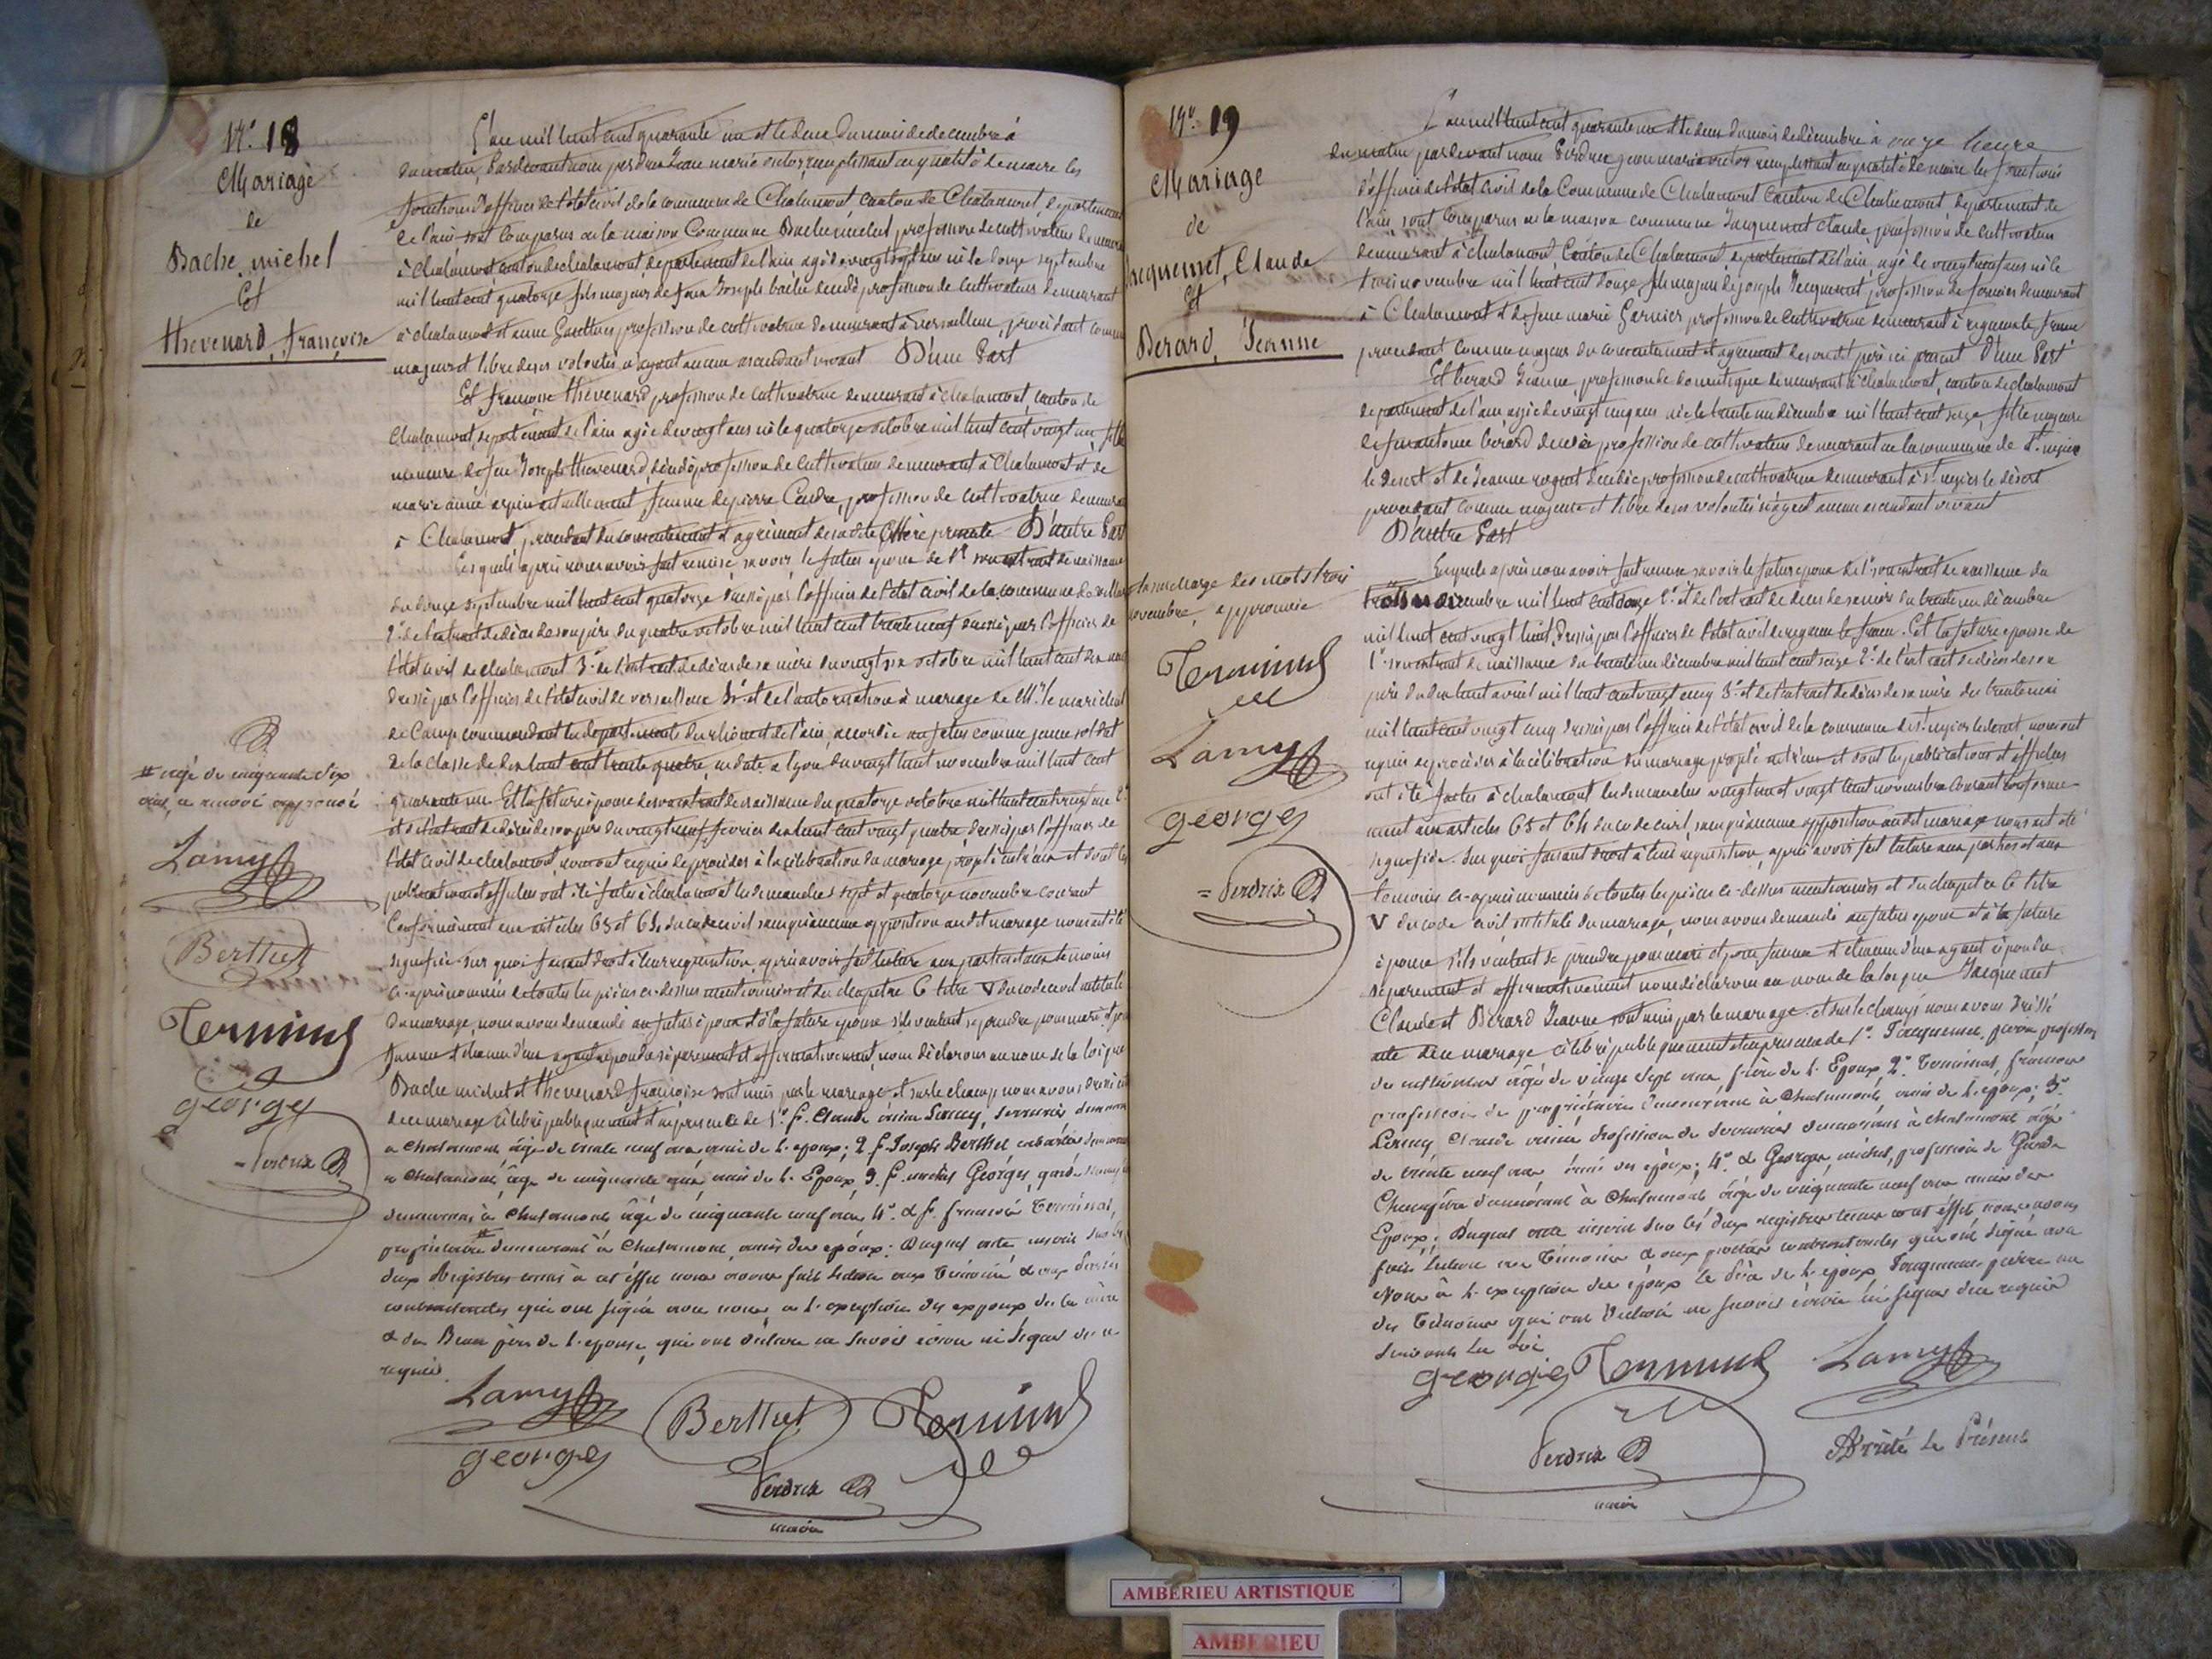 N.º 18
Mariage
de
Bache, michel
Et
Thevenard, françoise
L'an mil huit cent quarante un et le deux du mois de decembre à
du matin, Pardevant nous perdrix Jean marie victor, remplissant en qualité de maire les
fonctions d'officier de l'état civil de la commune de Chalamont, canton de Chalamont, departement
de l'ain sont comparus en la maison Commune Bache michel, profession de cultivateur demeurant
à Chalamont canton de chalamont departement de l'ain agé de vingt sept ans né le douze septembre
mil huit cent quatorze, fils majeur de feu Joseph bache décédé profession de Cultivateur demeurant
à chalamont et anne Gauthier profession de cultivatrice demeurant à versailleux, procédant comme
majeur et libre de ses volontés n'ayant aucun ascendant vivant D'une Part
Et françoise thevenard profession de cultivatrice demeurant à chalamont, canton de
Chalamont, departement de l'ain agée de vingt ans née le quatorze octobre mil huit cent vingt un, fille
mineure de feu Joseph thevenard, décédé profession de Cultivateur demeurant à Chalamont et de
marie aimée actuellement femme de pierre profession de cultivatrice demeurant
à Chalamont, procédant du consentement et agrément de sa dite Mère presente D'autre Part
Lesquels après nous avoir fait remise, savoir, le futur epoux de 1º son extrait de naissance
du douze septembre mil huit cent quatorze dressé par l'officier de l'etat civil de la commune de
2º de l'extrait de décès de son père du quatre octobre mil huit cent trente neuf dressé par l'officier de
l'état civil de chalamont 3º de l'extrait de décès de sa mère du vingt six octobre mil huit cent
dressé par l'officier de l'état civil de versailleux 4º et de l'autorisation à mariage de Mr le maréchal
de Camp commandant les departements du rhône et de l'ain, accordée au futur comme jeune soldat
de la classe de dix huit cent trente quatre, en date à lyon du vingt huit novembre mil huit cent
quarante un Et la future épouse de son extrait de naissance du quatorze octobre mil huit cent vingt un 2º
et de l'extrait de décès de son père du vingt neuf fevrier dix huit cent vingt quatre dressés par l'officier de
l'état civil de chalamont, nous ont requis de procéder à la célébration du mariage projeté entr'eux et dont les
publications et affiches ont été faites à chalamont les dimanches sept et quatorze novembre courant
Conformément aux articles 63 et 64 du code civil sans qu'aucune opposition audit mariage nous ait été
signifiée sur quoi faisant droit à leur requisition, après avoir fait lecture aux parties et aux temoins
ci-après nommés de toutes les pièces ci-dessus mentionnées et du chapitre 6 titre V du code civil intitulé
Du mariage, nous avons demandé au futur époux et à la future epouse s'ils veulent se prendre pour mari et pour
femme et chacun d'eux ayant répondu séparement et affirmativement, nous déclarons au nom de la loi que
Bache michel et thevenard françoise sont unis par le mariage et sur le champ nous avons dressé
de ce mariage célébré publiquement et en presence de 1º f. Claude Lamy, serrurier demeurant
à chalamont, âgé de trente neuf ans ami de l. epoux; 2 f. Joseph Berthet cabaretier demeurant
à chalamont, âgé de cinquante ans, ami de l. Epoux, 3. f. michel Georges, garde
demeurant à chalamont âgé de cinquante neuf ans 4º & f. françois Terminal,
propriétaire # demeurant à Chalamont, amis des epoux; Duquel acte inscrit sur les
deux Registres tenus à cet effet nous avons fait lecture aux témoins & aux parties
contractantes qui ont signé avec nous, à l. exception des époux de la mère
& du Beau père de l. epouse, qui ont déclaré ne savoir écrire ni signer de ce
requis.
# agé de cinquante six
ans, a renvoi approuvé
Lamy
Berthet
Terminal
georges
Perdrix
Lamy
Berthet
Terminal
georges
Perdrix
maire
Nº. 19
Mariage
de
Jacquemet, Claude
Et
Berard, Jeanne
L'an mil huit cent quarante un et le deux du mois de décembre à onze heure
du matin pardevant nous Perdrix jean marie victor remplissant en qualité de maire les fonctions
d'officier de l'état civil de la Commune de Chalamont Canton de Chalamont departement de
l'ain, sont comparus en la maison commune Jacquemet claude, profession de cultivateur
demeurant à chalamont Canton de Chalamont departement de l'ain, agé de vingt neuf ans né le
trois novembre mil huit cent douze fils majeur de joseph Jacquemet, profession de fermier demeurant
à Chalamont et de feue marie Garnier profession de cultivatrice demeurant à rigneux le franc
procédant comme majeur du consentement et agrément de son dit père ici present D'une Part
Et berard Jeanne profession de domestique demeurant à Chalamont, canton de chalamont
departement de l'ain agée de vingt cinq ans née le trente un décembre mil huit cent seize, fille majeure
de feu antoine bérard décédé profession de cultivateur demeurant en la commune de St. nizier
le desert, et de Jeanne décédée profession de cultivatrice demeurant à St. nizier le désert
procédant comme majeure et libre de ses volontés n'ayant aucun ascendant vivant
D'autre Part
Lesquels après nous avoir fait remise savoir le futur epoux de 1º son extrait de naissance du
mil huit cent douze 2º et de l'extrait de décès de sa mère du trente un décembre
mil huit cent vingt huit, dressés par l'officier de l'état civil de rigneux le franc. Et la future epouse de
1º son extrait de naissance du trente un décembre mil huit cent seize 2º de l'extrait de décès de son
père du dix huit avril mil huit cent vingt cinq 3º et de l'extrait de décès de sa mère du trente mai
mil huit cent vingt cinq dressés par l'officier de l'état civil de la commune de St. nizier le desert, nous ont
requis de procéder à la célébration du mariage projeté entr'eux et dont les publications et affiches
ont été faites à chalamont les dimanches vingt un et vingt huit novembre courant conformé-
ment aux articles 63 et 64 du code civil, sans qu'aucune opposition audit mariage nous ait été
signifiée. Sur quoi faisant droit à leur requisition, après avoir fait lecture aux parties et aux
temoins ci-après nommés de toutes les pièces ci-dessus mentionnées et du chapitre 6 titre
V du code civil, intitulé du mariage, nous avons demandé au futur epoux et à la future
épouse s'ils veulent se prendre pour mari et pour femme et chacun d'eux ayant répondu
séparement et affirmativement nous déclarons au nom de la loi que Jacquemet
Claude et Bérard Jeanne sont unis par le mariage et sur le champ nous avons dressé
acte de ce mariage célébré publiquement et en presence de 1º. Jacquemet, pierre profession
de cultivateur âgé de vingt sept ans, frère de l. Epoux, 2º Terminal, françois
profession de propriétaire demeurant à Chalamont, ami de l. époux; 3º
Lamy Claude profession de serrurier demeurant à chalamont âgé
de trente neuf ans ami des époux; 4º & Georges, michel, profession de Garde
Champêtre demeurant à Chalamont âgé de cinquante neuf ans ami des
Epoux; Duquel acte inscrit sur les deux registres tenus à cet effet nous avons
fait lecture aux témoins & aux parties contractantes qui ont signé avec
Nous à l. exception des époux le père de l. epoux Jacquemet pierre un
des témoins qui ont déclaré ne savoir écrire ni signer de ce requis
suivant la loi
la surcharge des mots trois
novembre, approuvée
Terminal
Lamy
georges
= Perdrix
georges Terminal Lamy
Perdrix
maire
Arrêté le Présent
AMBERIEU ARTISTIQUE
AMBERIEU